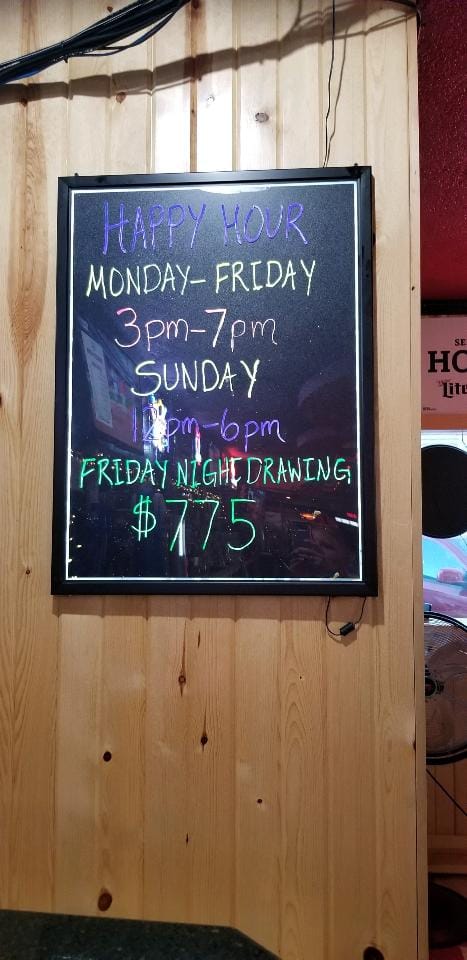 HAPPY HOUR
MONDAY-FRIDAY
3pm-7pm
SUNDAY
12pm-6pm
FRIDAY NIGHT DRAWING
$775
SE
HO
Lite